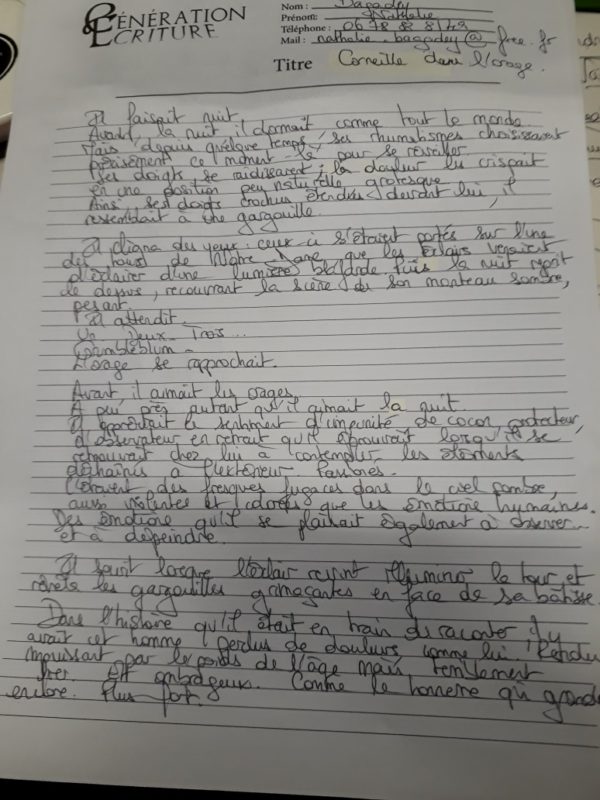 GÉNÉRATION
ÉCRITURE
Nom : Bagadey
Prénom: Nathalie
Téléphone : 06 78
Mail : nathalie.bagadey@free.fr
Titre Corneille dans l'orage.
Il faisait nuit.
Avant, la nuit, il dormait comme tout le monde.
Mais depuis quelque temps, ses rhumatismes choisissaient
précisément ce moment-là pour se réveiller.
Ses doigts se raidissaient ; la douleur les crispait
en une position peu naturelle, grotesque.
Ainsi, ses doigts crochus étendus devant lui, il
ressemblait à une gargouille.
Il cligna des yeux : ceux-ci s'étaient portés sur l'une
des tours de Notre-Dame que les éclairs venaient
d'éclairer d'une lumière blafarde. Puis la nuit reprit
le dessus, recouvrant la scène de son manteau sombre,
pesant.
Il attendit.
Un. Deux. Trois...
L'orage se rapprochait.
Avant, il aimait les orages.
A peu près autant qu'il aimait la nuit.
Il appréciait le sentiment d'impunité, de cocon protecteur,
d'observateur en retrait qu'il éprouvait lorsqu'il se
retrouvait chez lui à contempler les éléments
déchaînés à l'extérieur.
des fresques fugaces dans le ciel sombre,
aussi violentes et colorées que les émotions humaines.
Des émotions qu'il se plaisait également à observer
et à dépeindre.
Il sourit lorsque l'éclair revint illuminer la tour et
révéla les gargouilles grimaçantes en face de sa bâtisse.
Dans l'histoire qu'il était en train de raconter, il y
avait cet homme perclus de douleurs, comme lui. Rendu
par le poids de l'âge mais terriblement
fier. Et ombrageux. Comme le tonnerre qui gronde
encore. Plus fort.